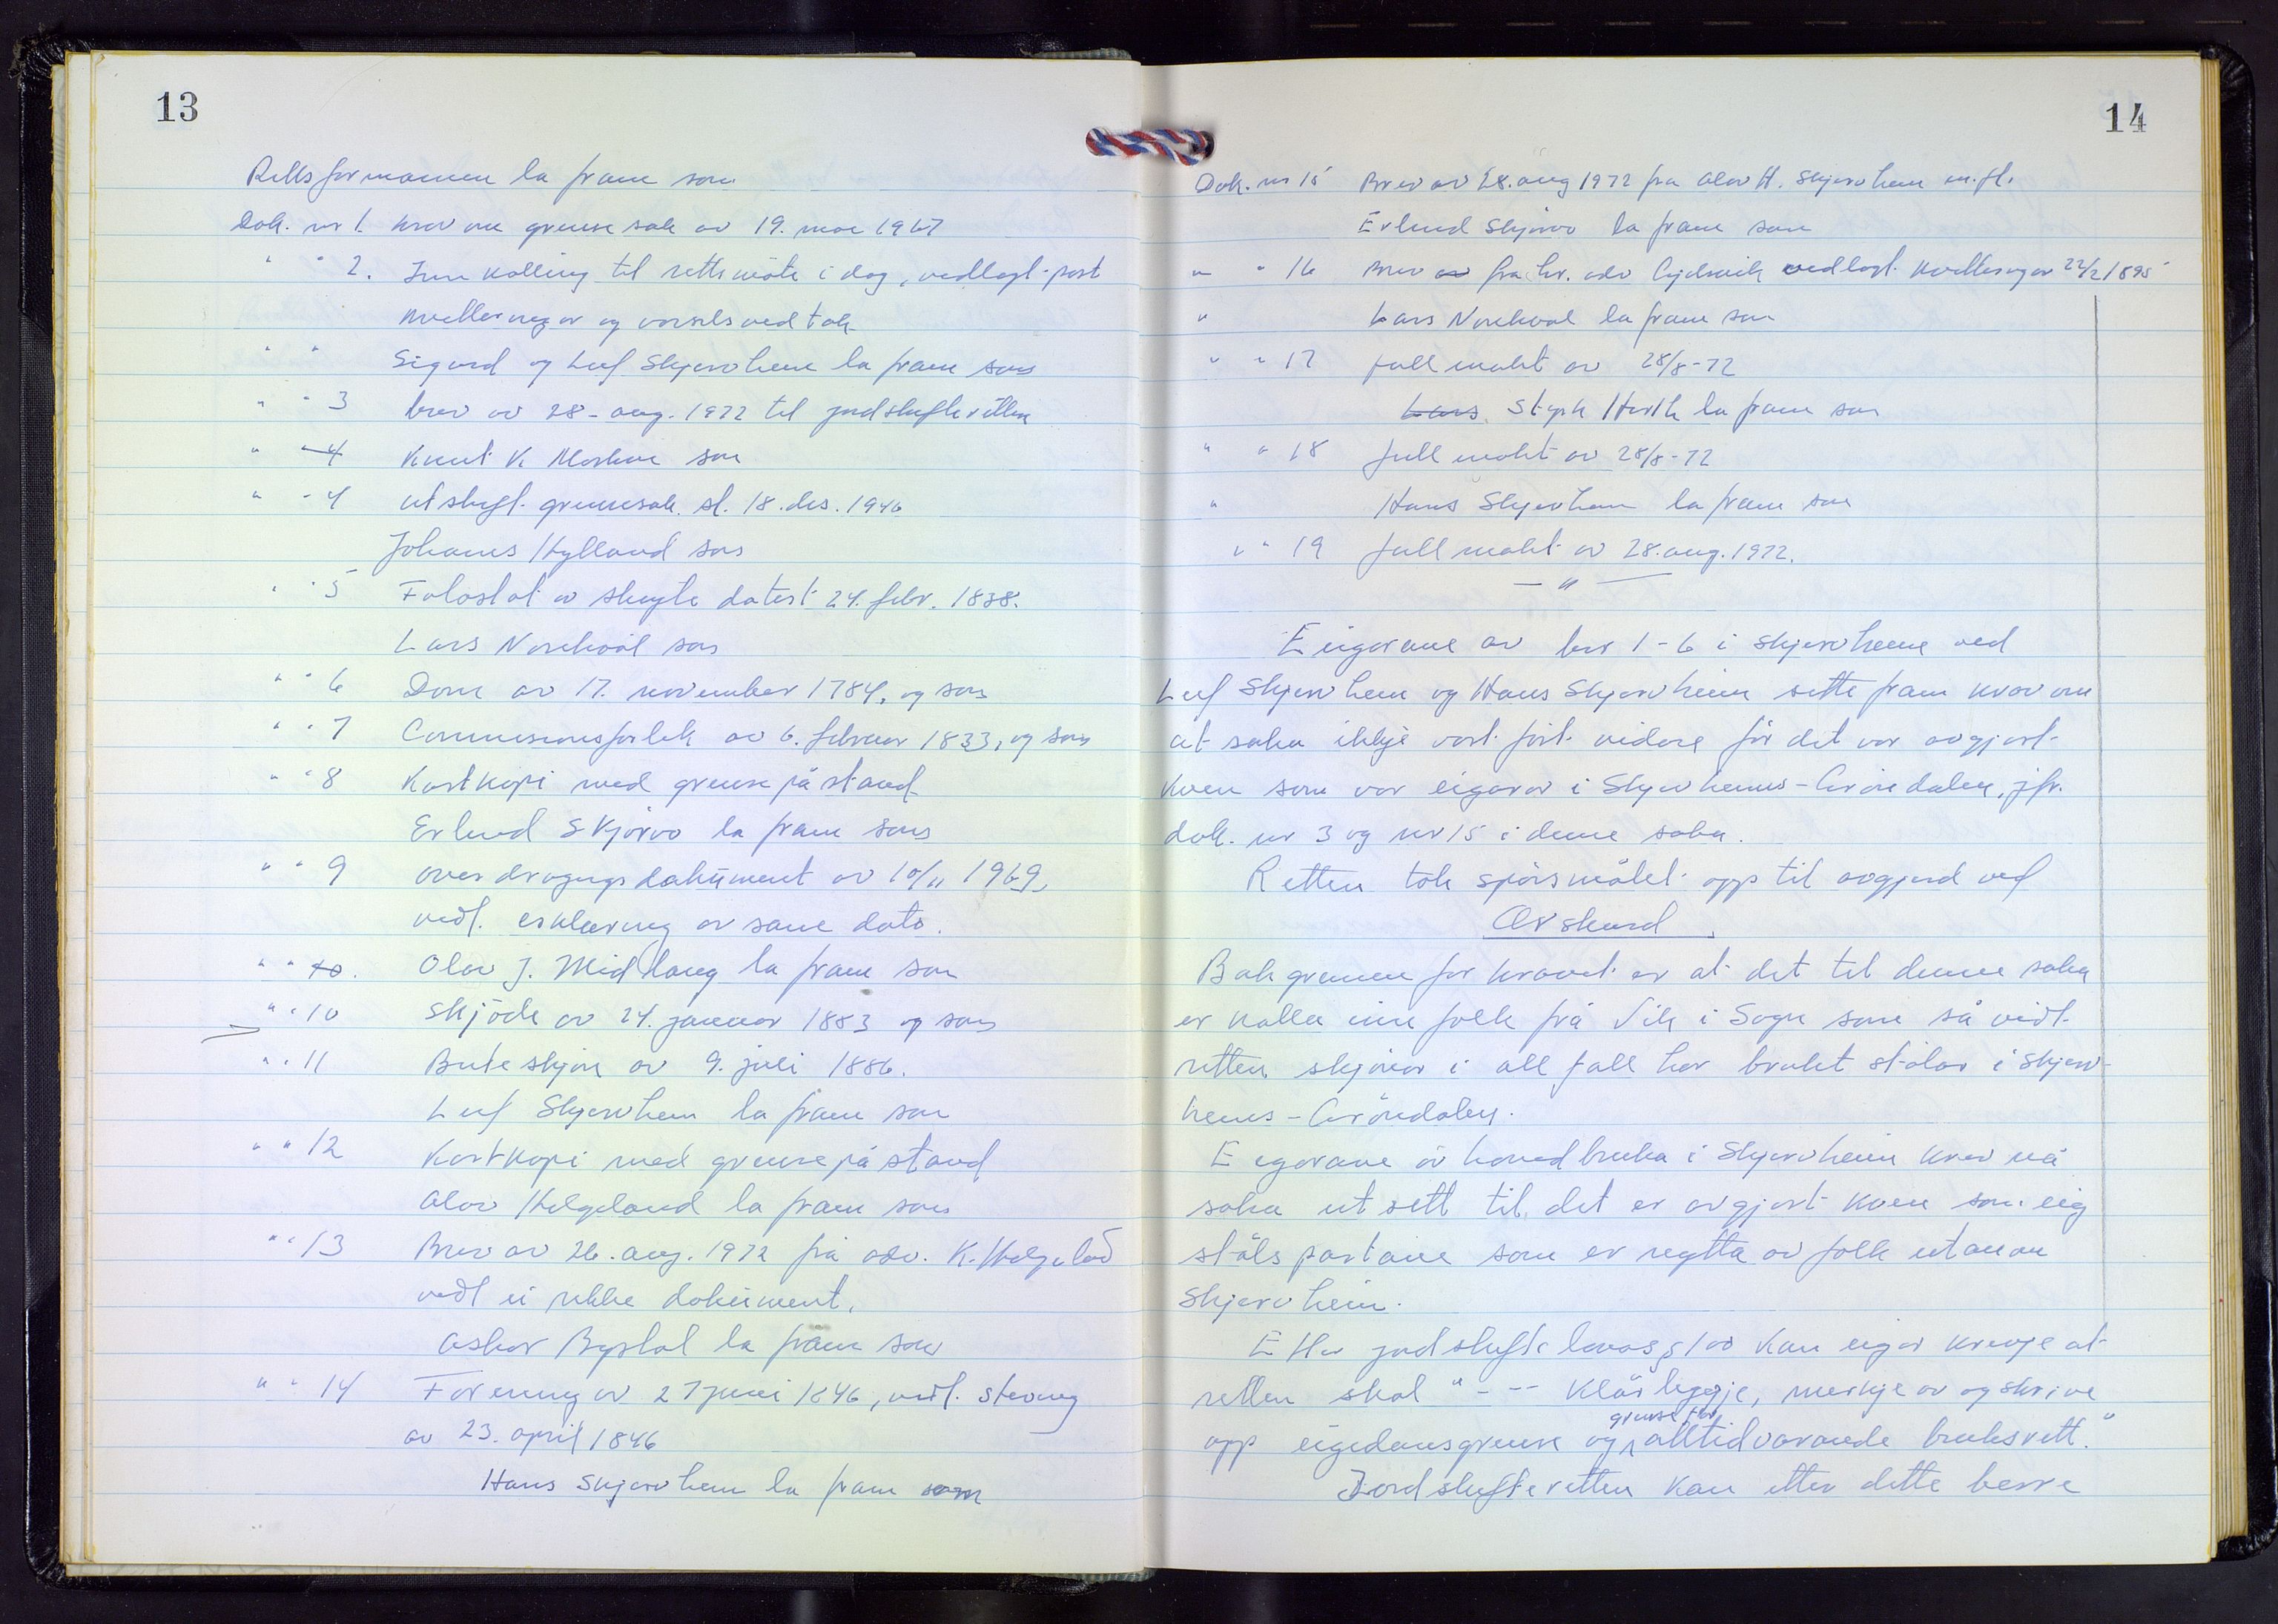 13
Rettsformannen la fram som
Dok. nr 1. krav om grensesak av 19. mai 1967
" " 2. Innkalling til rettsmöte i dag, vedlagt post
kvitteringar og varselsvedtak
" " Sigurd og Leif Skjervheim la fram som
" " 3 brev av 28. aug. 1972 til jordskifteretten
" " 4 Knut K. som
" " 4 utskrift grensesak sl. 18. des. 1946
Johannes Hylland som
" " 5 Fotostat av skøyte datert 24. febr. 1838.
Lars Norekvål som
" " 6 Dom av 17. november 1784, og som
" " 7 Commisionsforlik av 6. februar 1833, og som
" " 8 Kartkopi med grensepåstand
Erlend Skjörvo la fram som
" " 9 overdragingsdokument av 10/11 1969,
vedl. erklæring av same dato.
" " 10. Olav J. Midtlaug la fram som
" " 10 Skjöde av 24. januar 1883 og som
" " 11 Buteskjön av 9. juli 1886.
Leif Skjervheim la fram som
" " 12 Kartkopi med grensepåstand
Olav Helgeland la fram som
" " 13 Brev av 26. aug. 1972 frå adv. K. Helgeland
vedl. ei rekke dokument.
Oskar Bystøl la fram som
" " 14 Forening av 27 juni 1846, vedl. stevning
av 23. april 1846
Hans Skjervheim la fram som
14
Dok. nr 15 Brev av 28. aug 1972 fra Olav H. Skjervheim m.fl.
Erlend Skjörvo la fram som
" " 16 Brev av fra hr. adv. vedlagt kvitteringar 22/2 1895
" Lars Norekvål la fram som
" " 17 fullmakt av 28/8-72
Lars. Styrk Hirth la fram som
" " 18 fullmakt av 28/8-72
" Hans Skjervheim la fram som
" " 19 fullmakt av 28. aug. 1972.
— " —
Eigarane av bnr 1-6 i Skjervheim ved
Leif Skjervheim og Hans Skjervheim sette fram krav om
at saka ikkje vart fört vidare för det var avgjort
kven som var eigarar i Skjervheims-Gröndalen, jfr.
dok. nr 3 og nr 15 i denne saka.
Retten tok spörsmålet opp til avgjerd ved
Orskurd.
Bakgrunnen for kravet er at det til denne saka
er kalla inn folk frå Vik i Sogn som så vidt
retten skjönar i all fall har brukt stölar i Skjerv-
heims-Gröndalen.
Eigarane av hovedbruka i Skjervheim krev nå
saka utsett til det er avgjort kven som eig
stölspartane som er nytta av folk utanom
Skjervheim.
Etter jordskiftelovas § 100 kan eigar krevje at
retten skal " - -- klårleggje, merkje av og skrive
opp eigedomsgrenser og grense for alltidvarande bruksrett."
Jordskifteretten kan etter dette berre